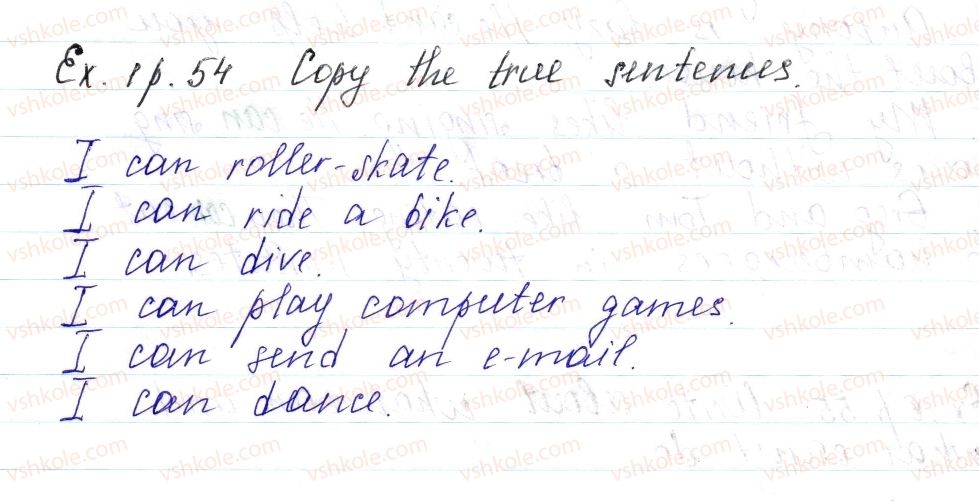 Ex. 1 p. 54 Copy the true sentences.
I can roller-skate.
I can ride a bike.
I can dive.
I can play computer games.
I can send an e-mail.
I can dance.